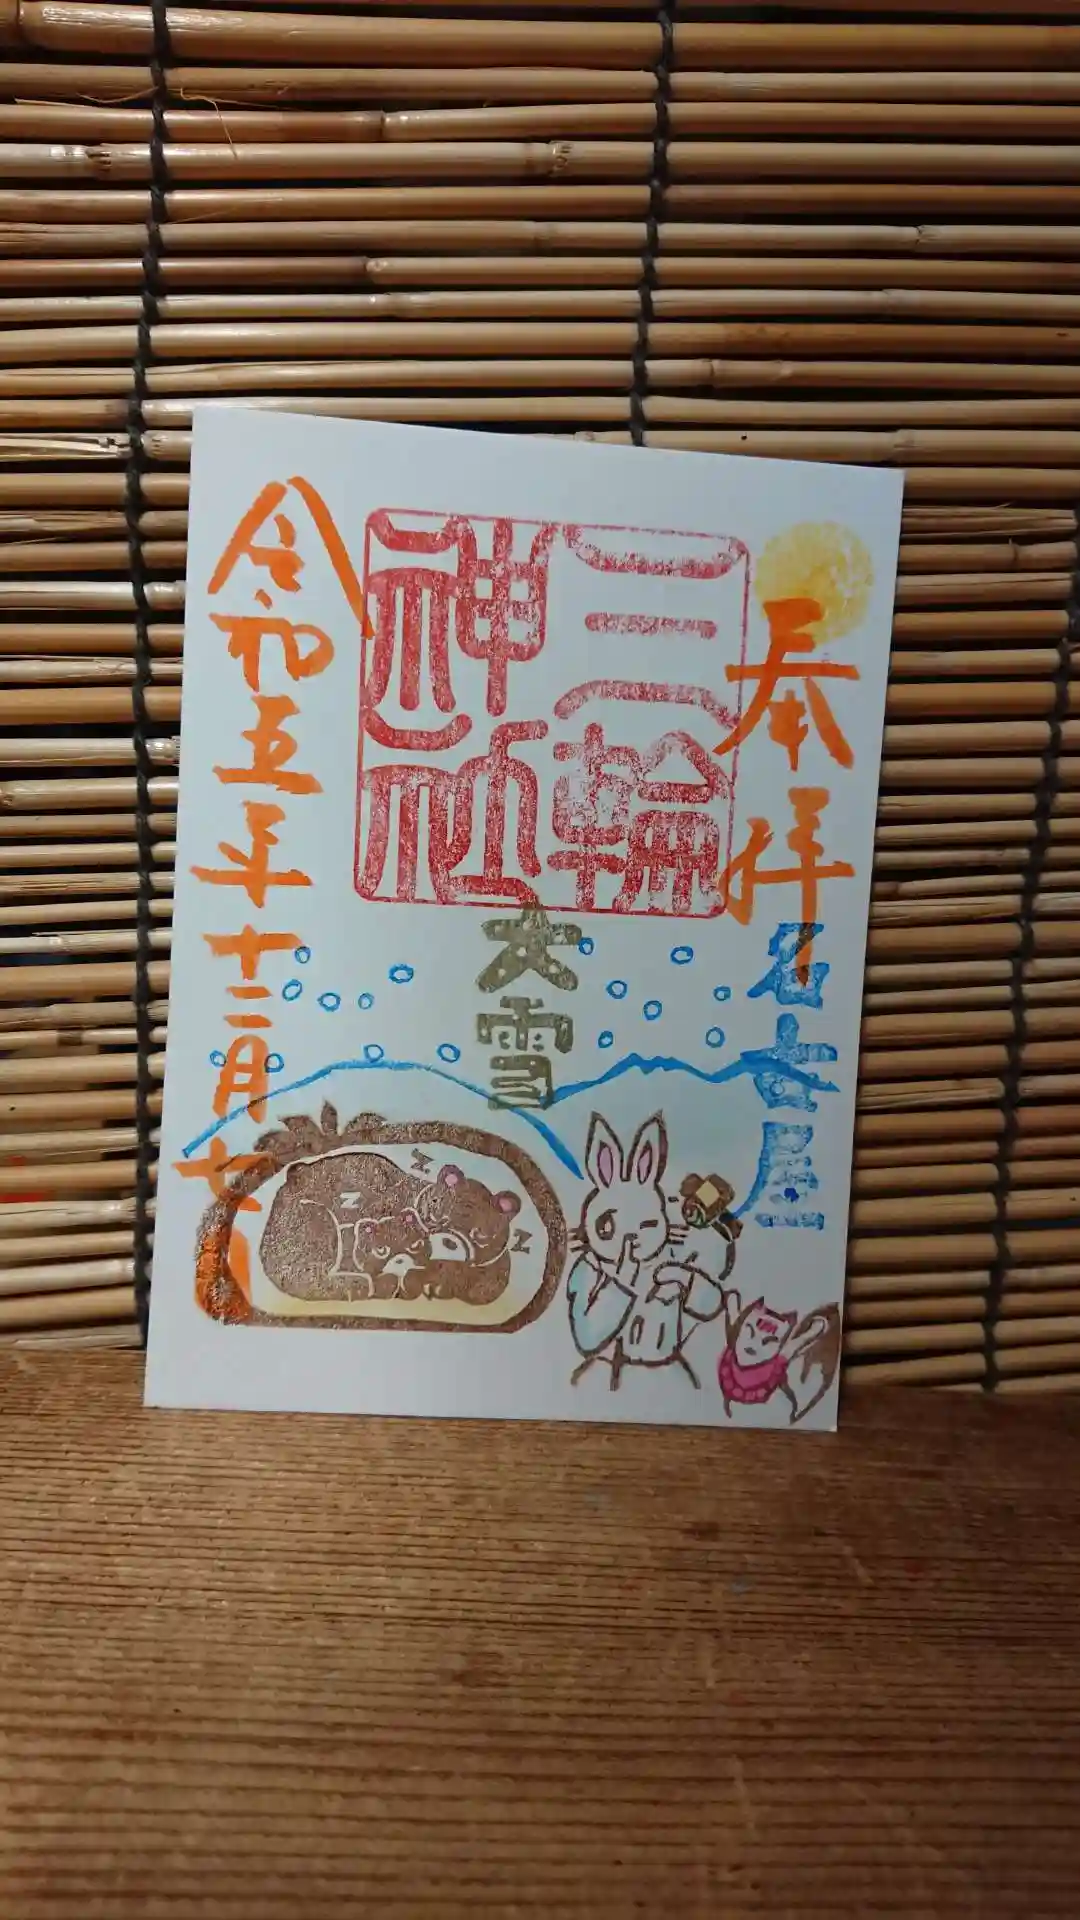 奉拝
名古屋
三輪
神社
大雪
Z
Z
Z
令和五年十二月七日